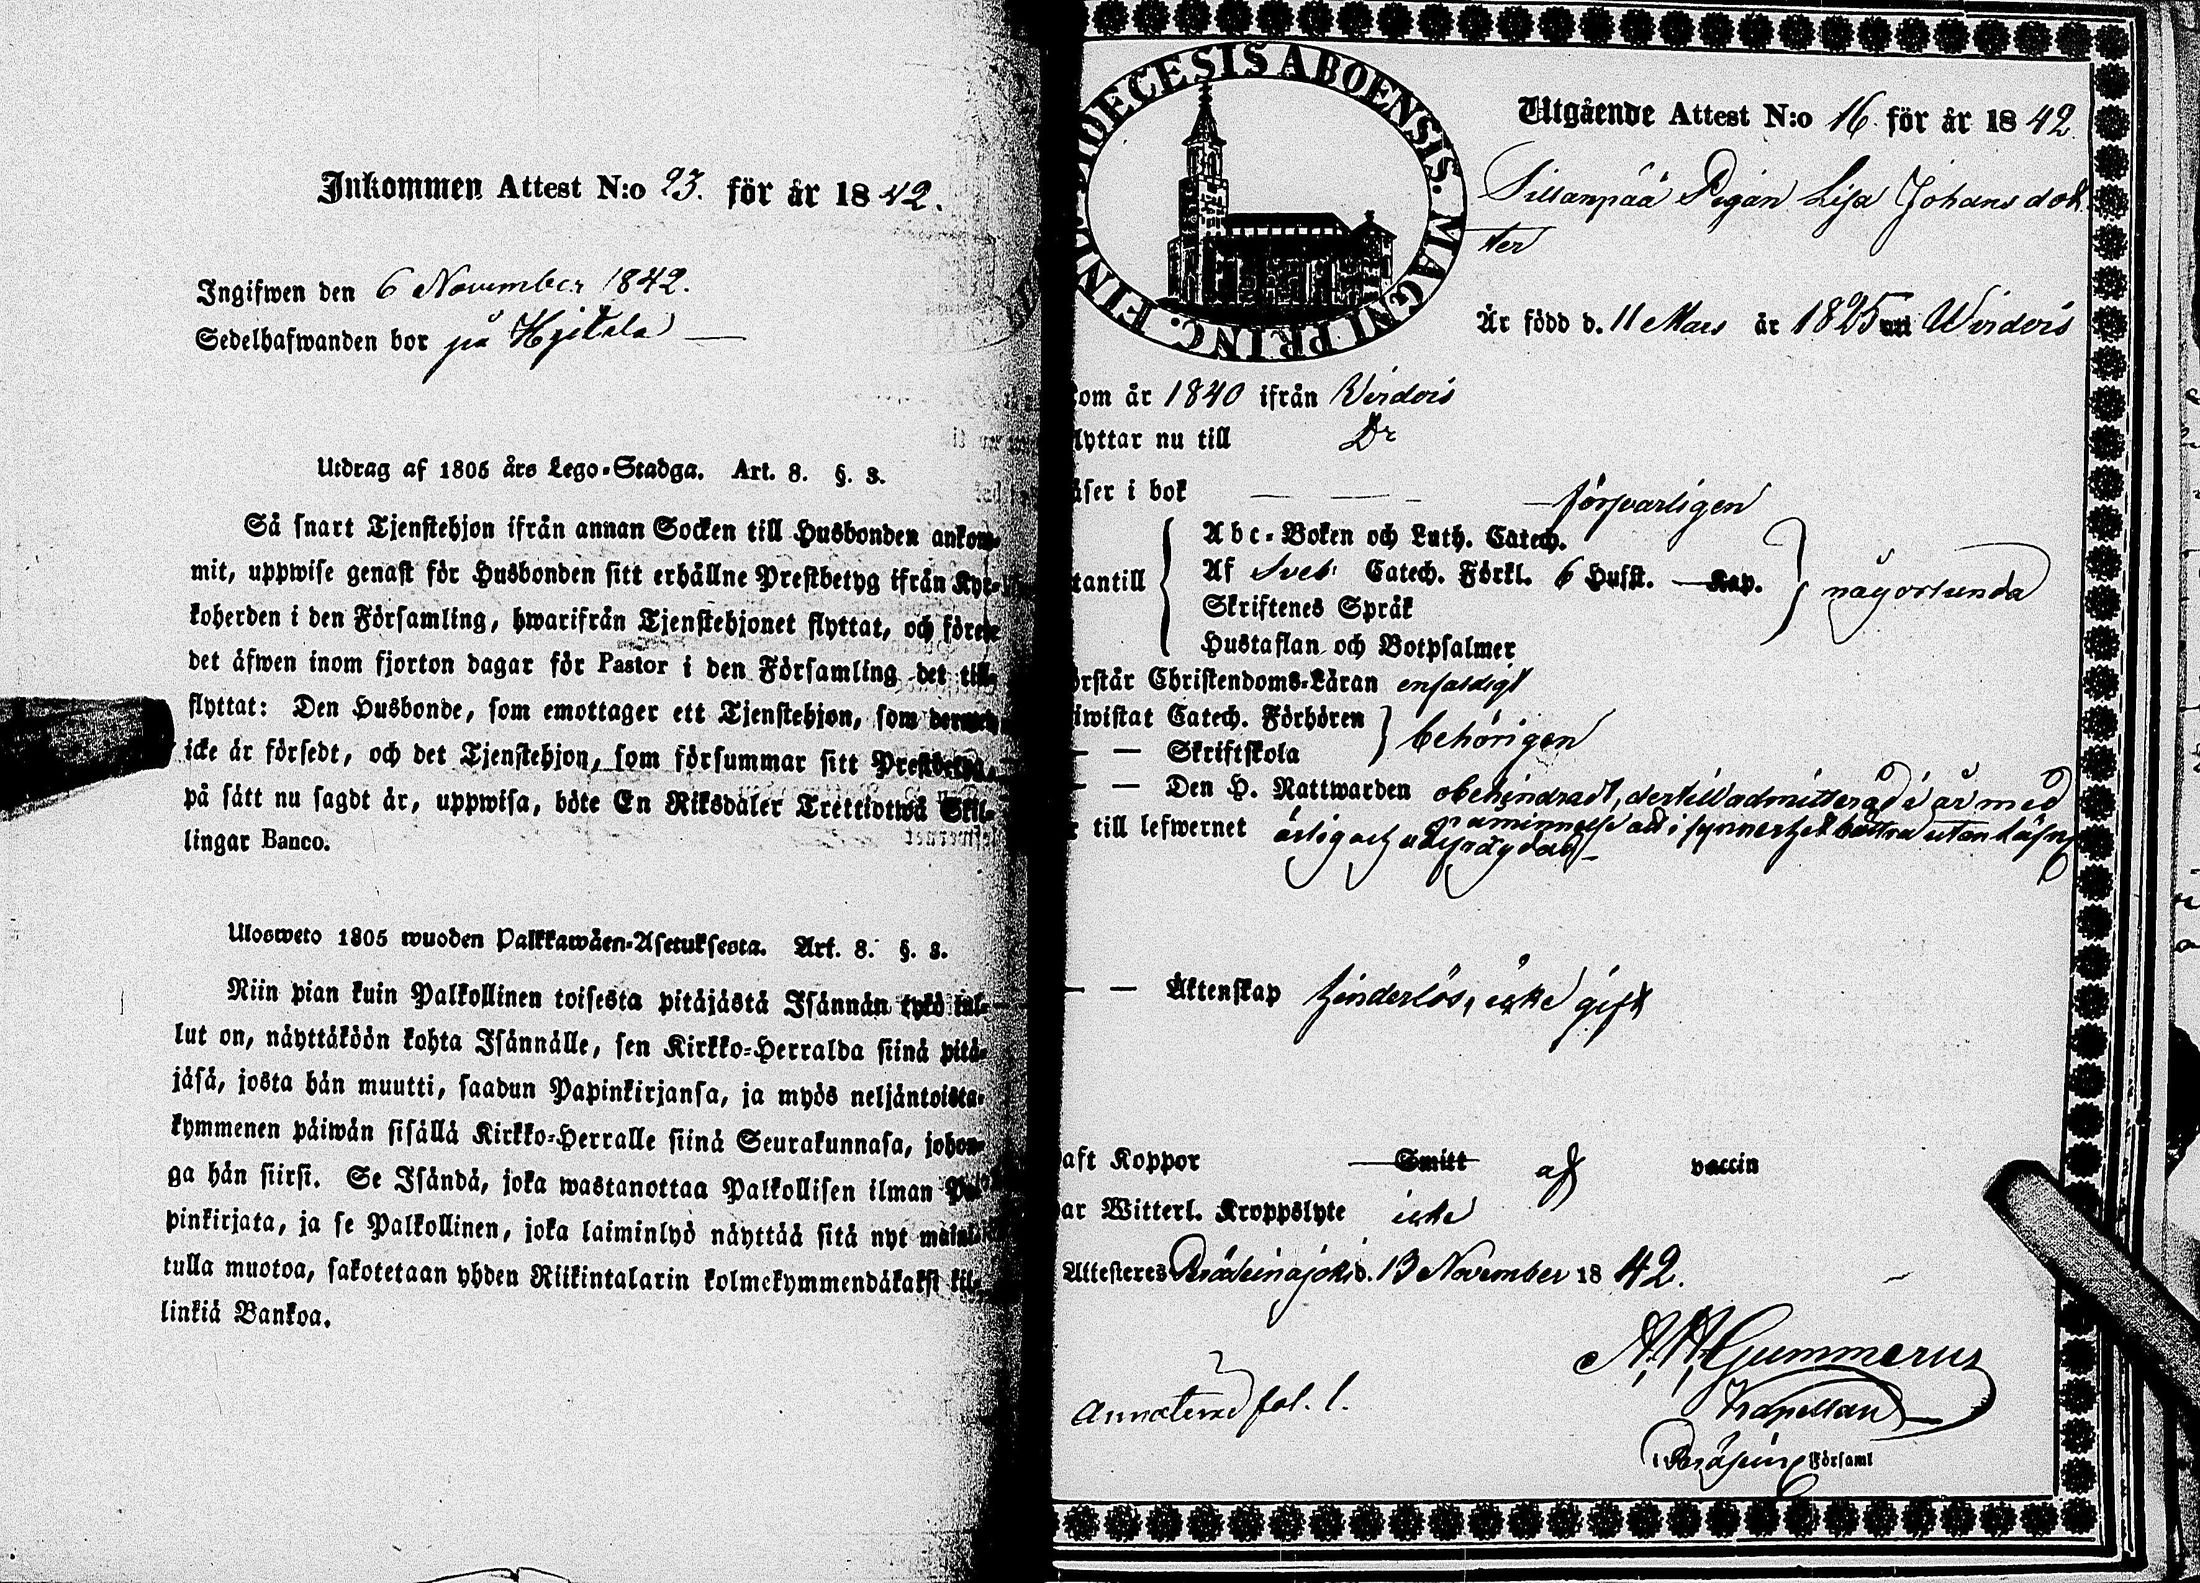 Inkommen Attest N:o 23. för år 1842.
Ingifwen den 6 November 1842.
Sedelhafwanden bor på Hjitala
Utdrag af 1805 års Lego-Stadga. Art. 8. §. 3.
Så snart Tjenstehjon ifrån annan Socken till Husbonden ankom-
mit, uppwise genast för Husbonden sitt erhållne Prestbetyg ifrån Kyr-
koherden i den Församling, hwarifrån Tjenstehjonet flyttat, och förete
det äfwen inom fjorton dagar för Pastor i den Församling det till-
flyttat: Den Husbonde, som emottager ett Tjenstehjon, som dermed
icke är försedt, och det Tjenstehjon, som försummar sitt Prestbetyg,
på sätt nu sagdt är, uppwisa, böte En Riksdaler Trettiotwå Skil-
lingar Banco.
Ulosweto 1805 wuoden Palkkawäen-Asetuksesta. Art. 8. §. 3.
Niin pian kuin Palkollinen toisesta pitäjästä Isännän tykö tul-
lut on, näyttäköön kohta Isännälle, sen Kirkko-Herralda siinä pitä-
jäsä, josta hän muutti, saadun Papinkirjansa, ja myös neljäntoista-
kymmenen päiwän sisällä Kirkko-Herralle siinä Seurakunnasa, johon-
ga hän siirsi. Se Isändä, joka wastanottaa Palkollisen ilman Pa-
pinkirjata, ja se Palkollinen, joka laiminlyö näyttää sitä nyt mainit-
tulla muotoa, sakotetaan yhden Riikintalarin kolmekymmendäkaksi kil-
linkiä Bankoa.
DIOECESIS ABOENSIS. MAGNI PRINC. FINL.
Utgående Attest N:o 16 för år 1842
Sillanpää Pigan Lisa Johansdot
ter
Är född d. 11 Mars år 1825 uti Wirdois
kom år 1840 ifrån Virdois
flyttar nu till Do
läser i bok försvarligen
Abc-Boken och Luth. Catech.
utantill Af Sveb. Catech. Förkl. 6 Hufst. Kap. någorlunda
Skriftenes Språk
Hustaflan och Botpsalmer
förstår Christendoms-Läran enfaldigt
biwistat Catech. Förhören
— — Skriftskola behörigen
— — Den H. Nattwarden obehindradt, dertill admitterad i år med
påminnelse att i synnerhet bättra utanläsn
är till lefwernet ärlig och
— — Äktenskap hinderlös, icke gift
haft Koppor Smitt af vaccin
har Witterl. Kroppslyte icke
Attesteres Peräseinäjoki d. 13 November 1842.
Gummerus
Kapellan
annoterad fol. 1.
i Peräsein Församl